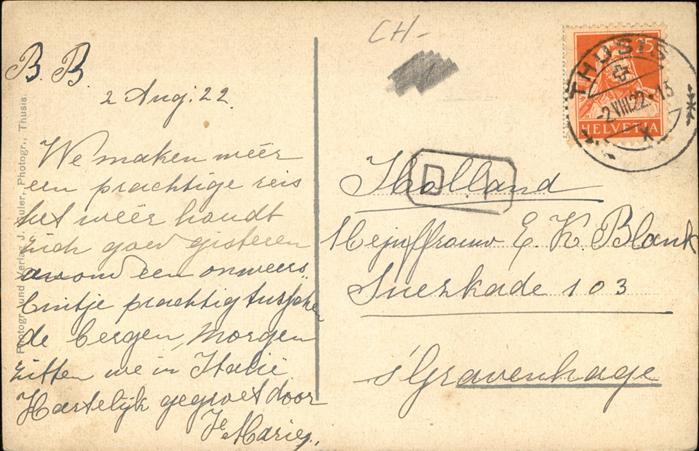 B. B.
2 Aug: 22.
We maken weer
een prachtige reis
het weer houdt
zich goed gisteren
avond een onweers
buitje prachtig tusschen
de bergen, Morgen
zitten we in Italië
Hartelijk gegroet door
Je Marie,
CH-
25
HELVETIA
THUSIS
-2.VIII.22.-15
D
Holland
Mejuffrouw E. K. Blank
Suezkade 103
s'Gravenhage
Photogr. und Verlag J. Guler, Photogr., Thusis.